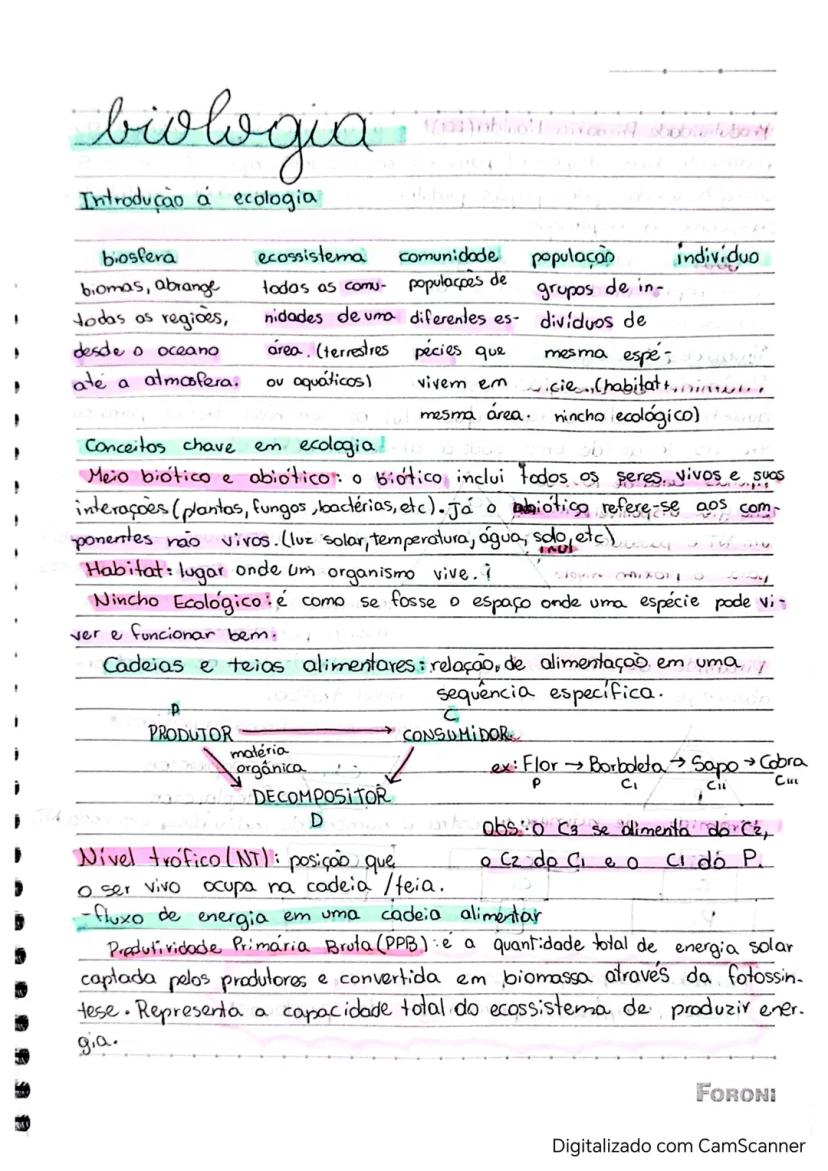 biologia
Introdução á ecologia
biosfera ecossistema comunidade população indivíduo
biomas, abrange todas as comu- populações de grupos de in-
todas as regiões, nidades de uma diferentes es- divíduos de
desde o oceano área. (terrestres pécies que mesma espé-
até a atmosfera. ou aquáticos) vivem em cie. (habitat +
mesma área. nincho ecológico)
Conceitos chave em ecologia
Meio biótico e abiótico: o biótico inclui todos os seres vivos e suas
interações (plantas, fungos, bactérias, etc). Já o abiótico refere-se aos com-
ponentes não vivos. (luz solar, temperatura, água, solo, etc)
Habitat: lugar onde um organismo vive.
Nincho Ecológico: é como se fosse o espaço onde uma espécie pode vi-
ver e funcionar bem.
Cadeias e teias alimentares: relação de alimentação em uma
sequência específica.
P C
PRODUTOR → CONSUMIDOR
matéria
orgânica
ex: Flor → Borboleta → Sapo → Cobra
P CI CII CIII
DECOMPOSITOR
D
obs: o C3 se alimenta do C2,
o C2 do C1 e o C1 do P.
Nível trófico (NT): posição que
o ser vivo ocupa na cadeia /teia.
-fluxo de energia em uma cadeia alimentar
Produtividade Primária Bruta (PPB): é a quantidade total de energia solar
captada pelos produtores e convertida em biomassa através da fotossín-
tese. Representa a capacidade total do ecossistema de produzir ener-
gia.
FORONI
Digitalizado com CamScanner